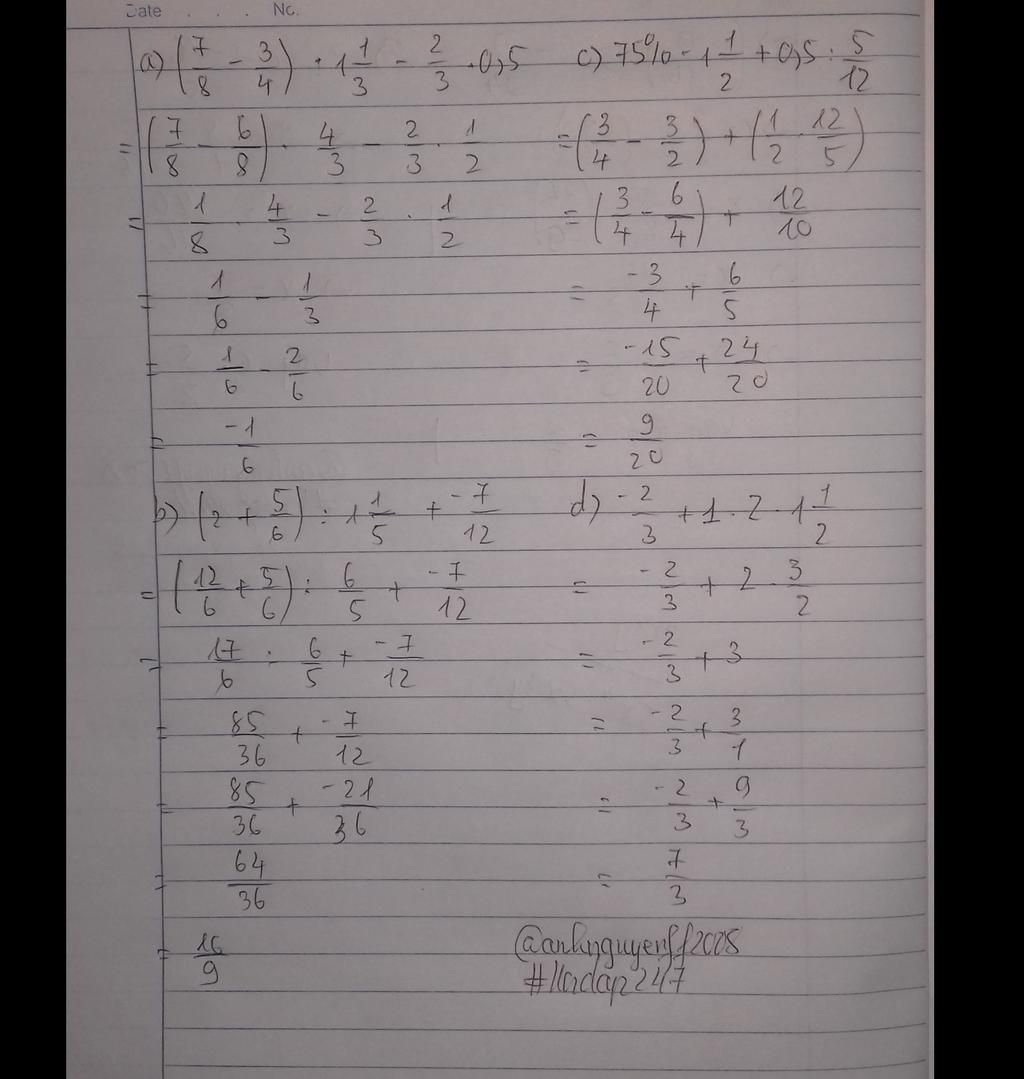 Date . . . No.
a) (7/8 - 3/4) . 1 1/3 - 2/3 . 0,5
= (7/8 - 6/8) . 4/3 - 2/3 . 1/2
= 1/8 . 4/3 - 2/3 . 1/2
= 1/6 - 1/3
= 1/6 - 2/6
= -1/6
b) (2 + 5/6) : 1 1/5 + -7/12
= (12/6 + 5/6) : 6/5 + -7/12
= 17/6 : 6/5 + -7/12
= 85/36 + -7/12
= 85/36 + -21/36
= 64/36
= 16/9
c) 75% - 1 1/2 + 0,5 : 5/12
= (3/4 - 3/2) + (1/2 . 12/5)
= (3/4 - 6/4) + 12/10
= -3/4 + 6/5
= -15/20 + 24/20
= 9/20
d) -2/3 + 1 . 2 . 1 1/2
= -2/3 + 2 . 3/2
= -2/3 + 3
= -2/3 + 3/1
= -2/3 + 9/3
= 7/3